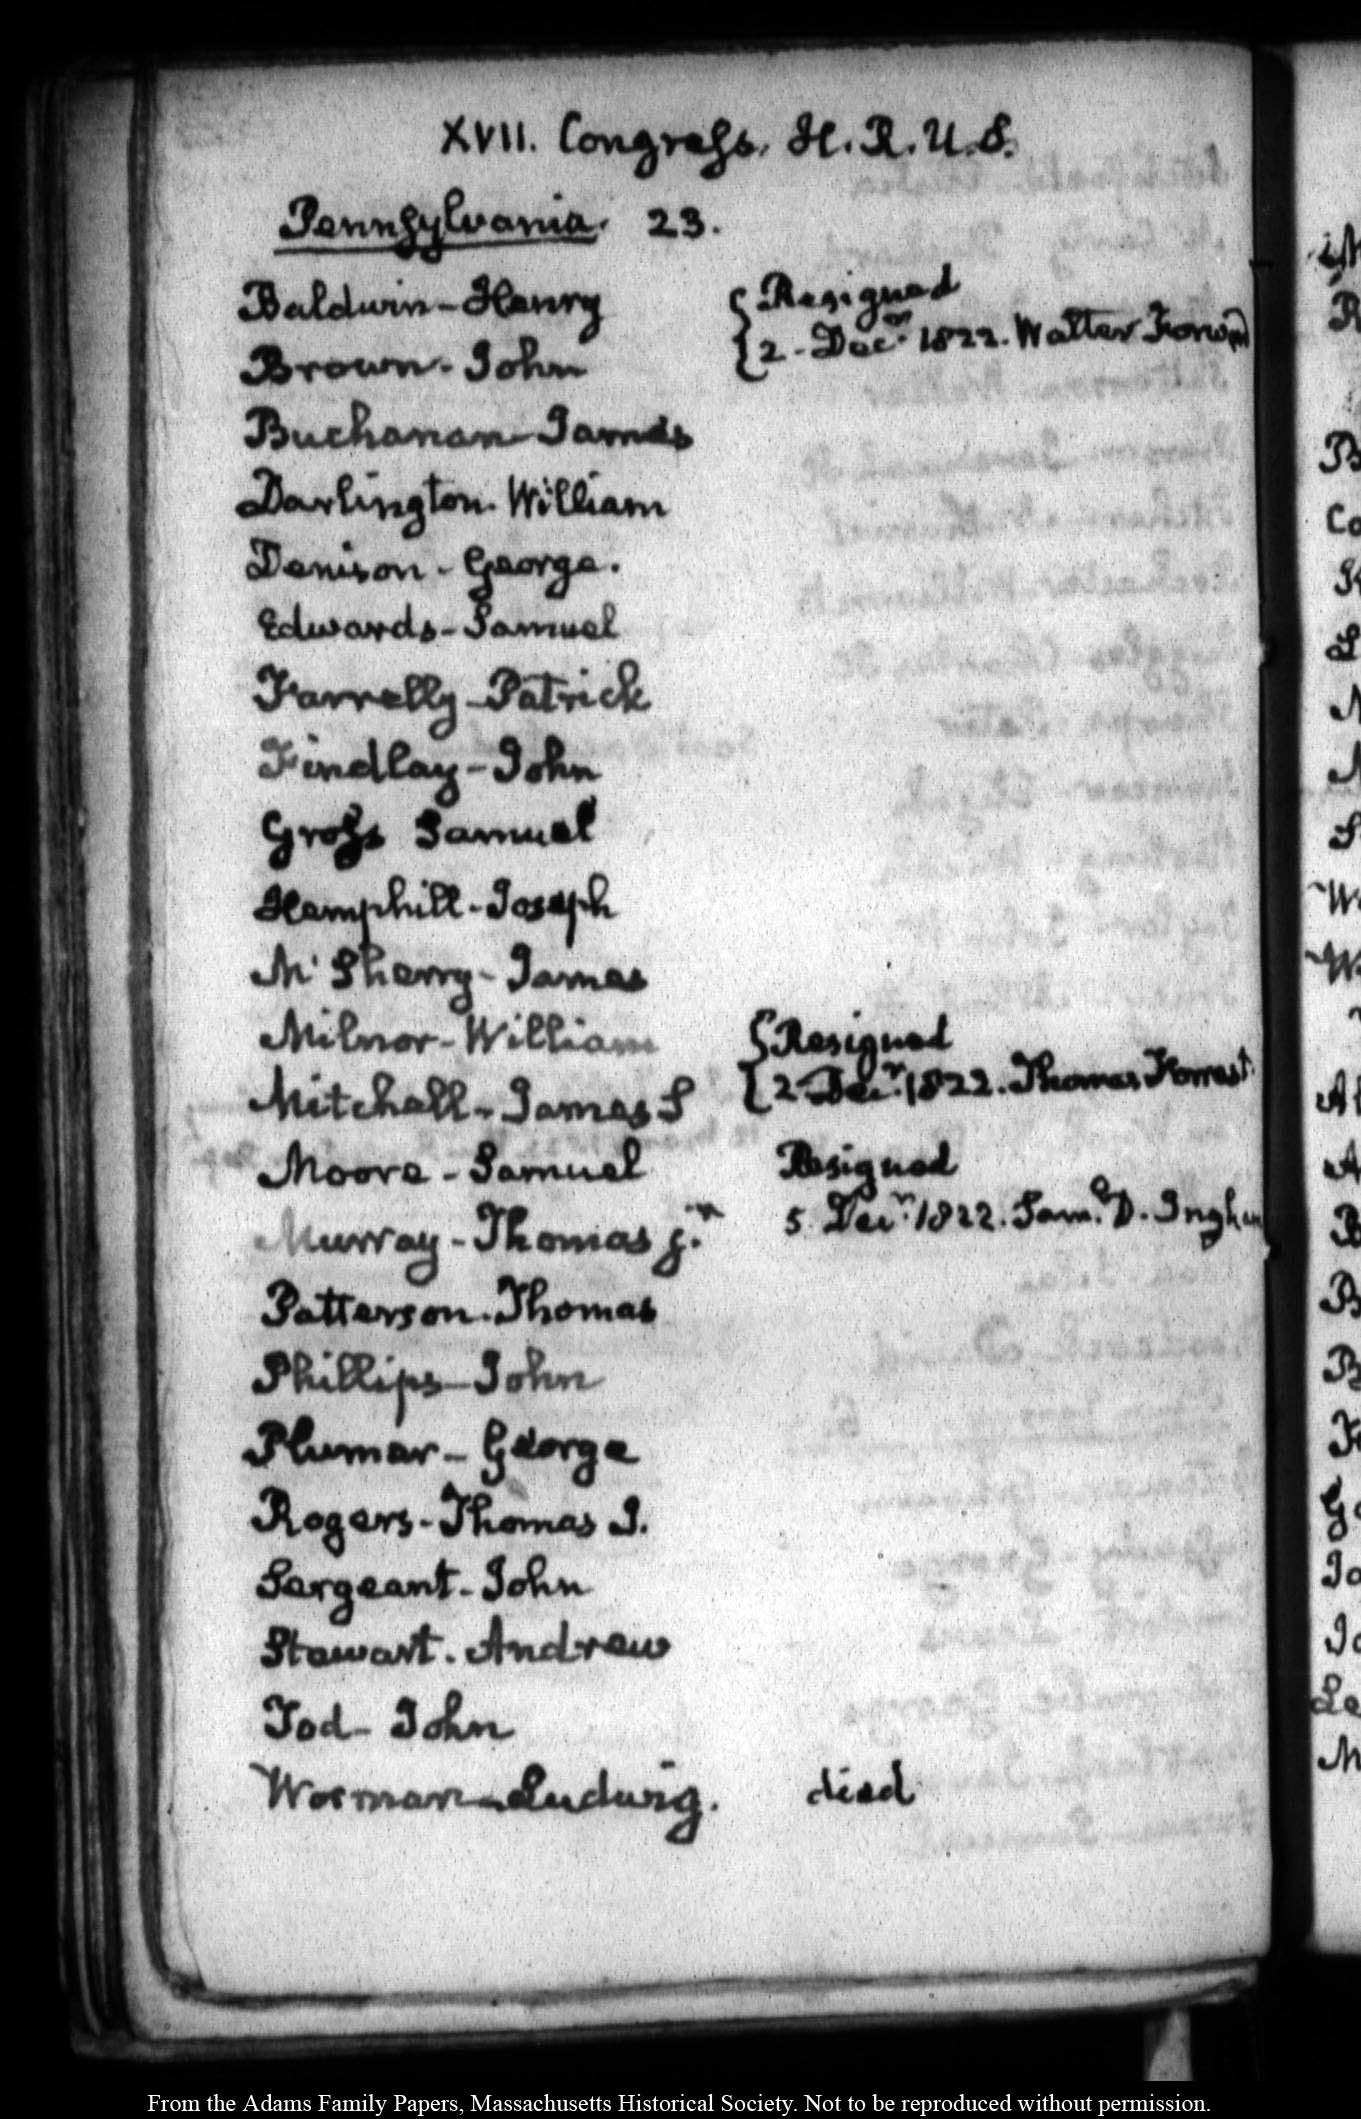 XVII. Congress. H. R. U. S.
Pennsylvania. 23.
Baldwin - Henry { Resigned
Brown - John { 2 - Decr. 1822. Walter Forward
Buchanan - James
Darlington - William
Denison - George.
Edwards - Samuel
Farrelly - Patrick
Findlay - John
Gross Samuel
Hemphill - Joseph
McSherry - James
Milnor - William { Resigned
Mitchell - James S { 2 Decr. 1822. Thomas Forrest
Moore - Samuel Resigned
Murray - Thomas jr. 5. Decr. 1822. Saml. D. Ingham
Patterson - Thomas
Phillips - John
Plumer - George
Rogers - Thomas J.
Sergeant - John
Stewart - Andrew
Tod - John
Worman - Ludwig. died
From the Adams Family Papers, Massachusetts Historical Society. Not to be reproduced without permission.